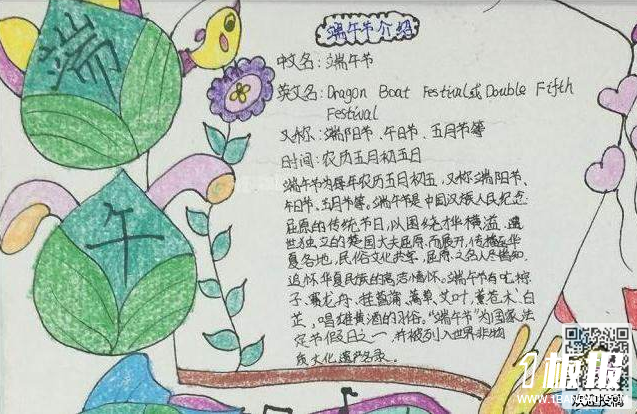 端
午
端午节介绍
中文名:端午节
英文名:Dragon Boat Festival或Double Fifth
Festival
又称:端阳节、午日节、五月节等
时间:农历五月初五日
端午节为每年农历五月初五,又称端阳节、
午日节、五月节等。端午节是中国汉族人民纪念
屈原的传统节日,以围绕才华横溢、遗
世独立的楚国大夫屈原而展开,传播至华
夏各地,民俗文化共享,屈原之名人尽皆知,
追怀华夏民族的高洁情怀。端午节有吃粽
子,赛龙舟,挂菖蒲、蒿草、艾叶,薰苍术、白
芷,唱雄黄酒的习俗。"端午节"为国家法
定节假日之一,并被列入世界非物
质文化遗产名录。
1板报